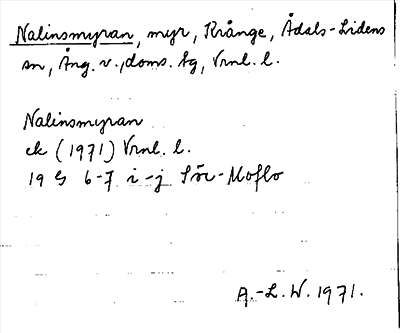 Nalinsmyran, myr, Krånge, Ådals-Lidens
sn, Ång. v., doms. sg, Vrnl. l.
Nalinsmyran
ek (1971) Vrnl. l.
19 G 6-7 i-j Sör-Moflo
A.-L. W. 1971.